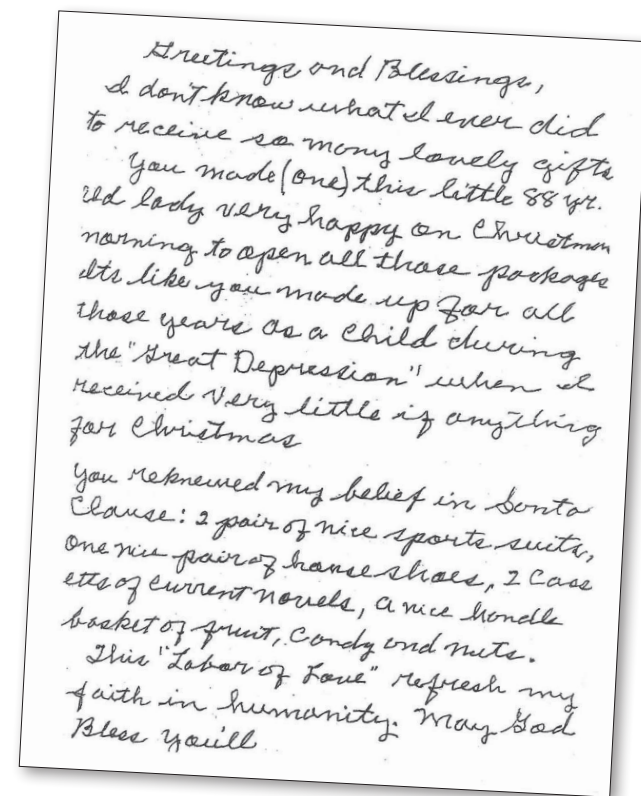 Greetings and Blessings,
I don't know what I ever did
to receive so many lovely gifts
You made (one) this little 88 yr.
old lady very happy on Christmas
morning to open all those packages
Its like you made up for all
those years as a child during
the "Great Depression" when I
received very little if anything
for Christmas
You reknewed my belief in Santa
Clause: 2 pair of nice sports suits,
one nice pair of house shoes, 2 Cass
etts of current novels, a nice handle
basket of fruit, Candy and nuts.
This "Labor of Love" refresh my
faith in humanity. May God
Bless You'll